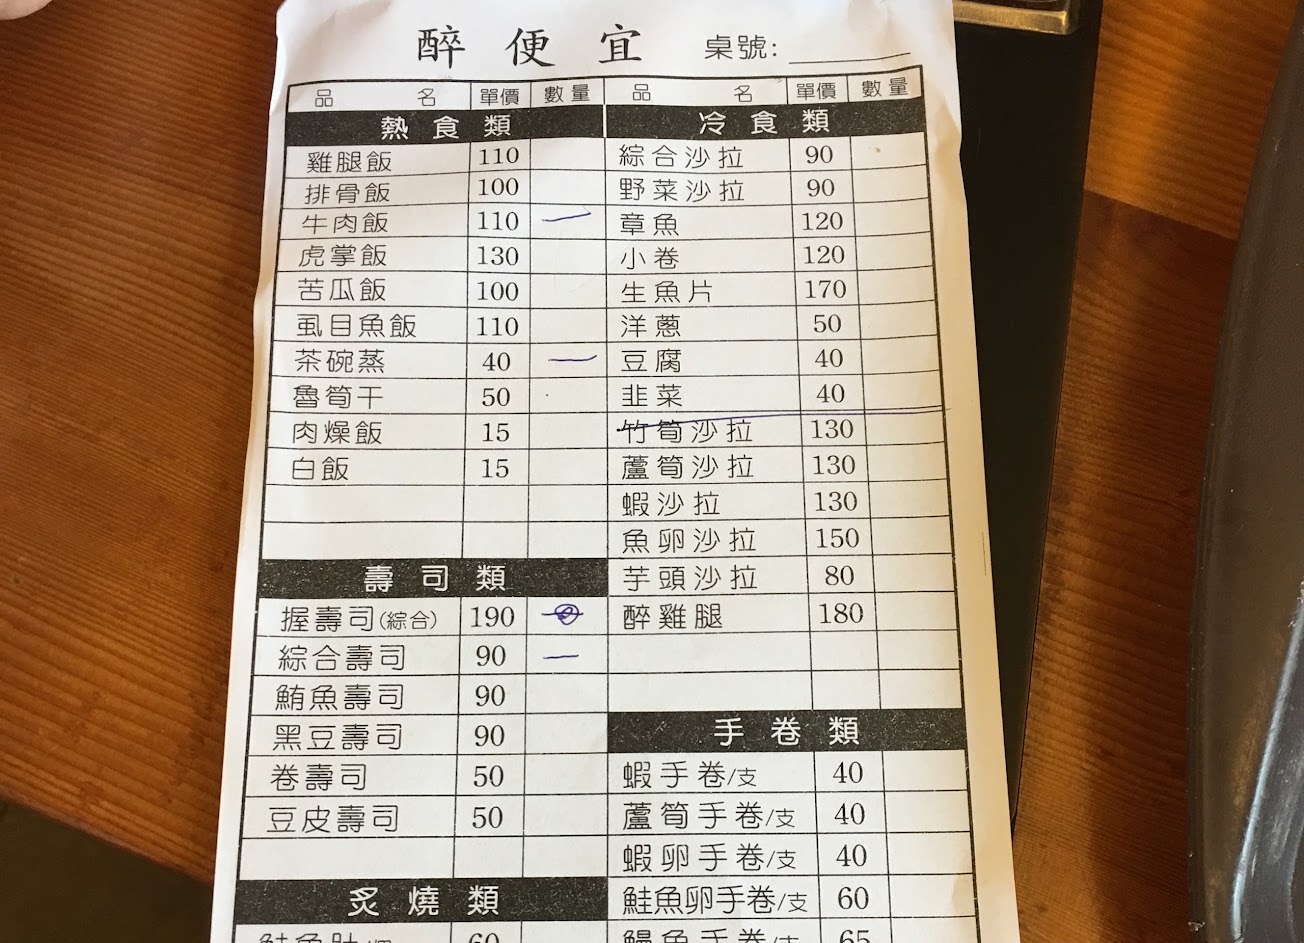 醉便宜 桌號:
品名 單價 數量 品名 單價 數量
熱食類
雞腿飯 110
排骨飯 100
牛肉飯 110 一
虎掌飯 130
苦瓜飯 100
虱目魚飯 110
茶碗蒸 40 一
魯筍干 50
肉燥飯 15
白飯 15
壽司類
握壽司(綜合) 190
綜合壽司 90 一
鮪魚壽司 90
黑豆壽司 90
卷壽司 50
豆皮壽司 50
炙燒類
冷食類
綜合沙拉 90
野菜沙拉 90
章魚 120
小卷 120
生魚片 170
洋蔥 50
豆腐 40
韭菜 40
竹筍沙拉 130
蘆筍沙拉 130
蝦沙拉 130
魚卵沙拉 150
芋頭沙拉 80
醉雞腿 180
手卷類
蝦手卷/支 40
蘆筍手卷/支 40
蝦卵手卷/支 40
鮭魚卵手卷/支 60
鰻魚手卷/支 65